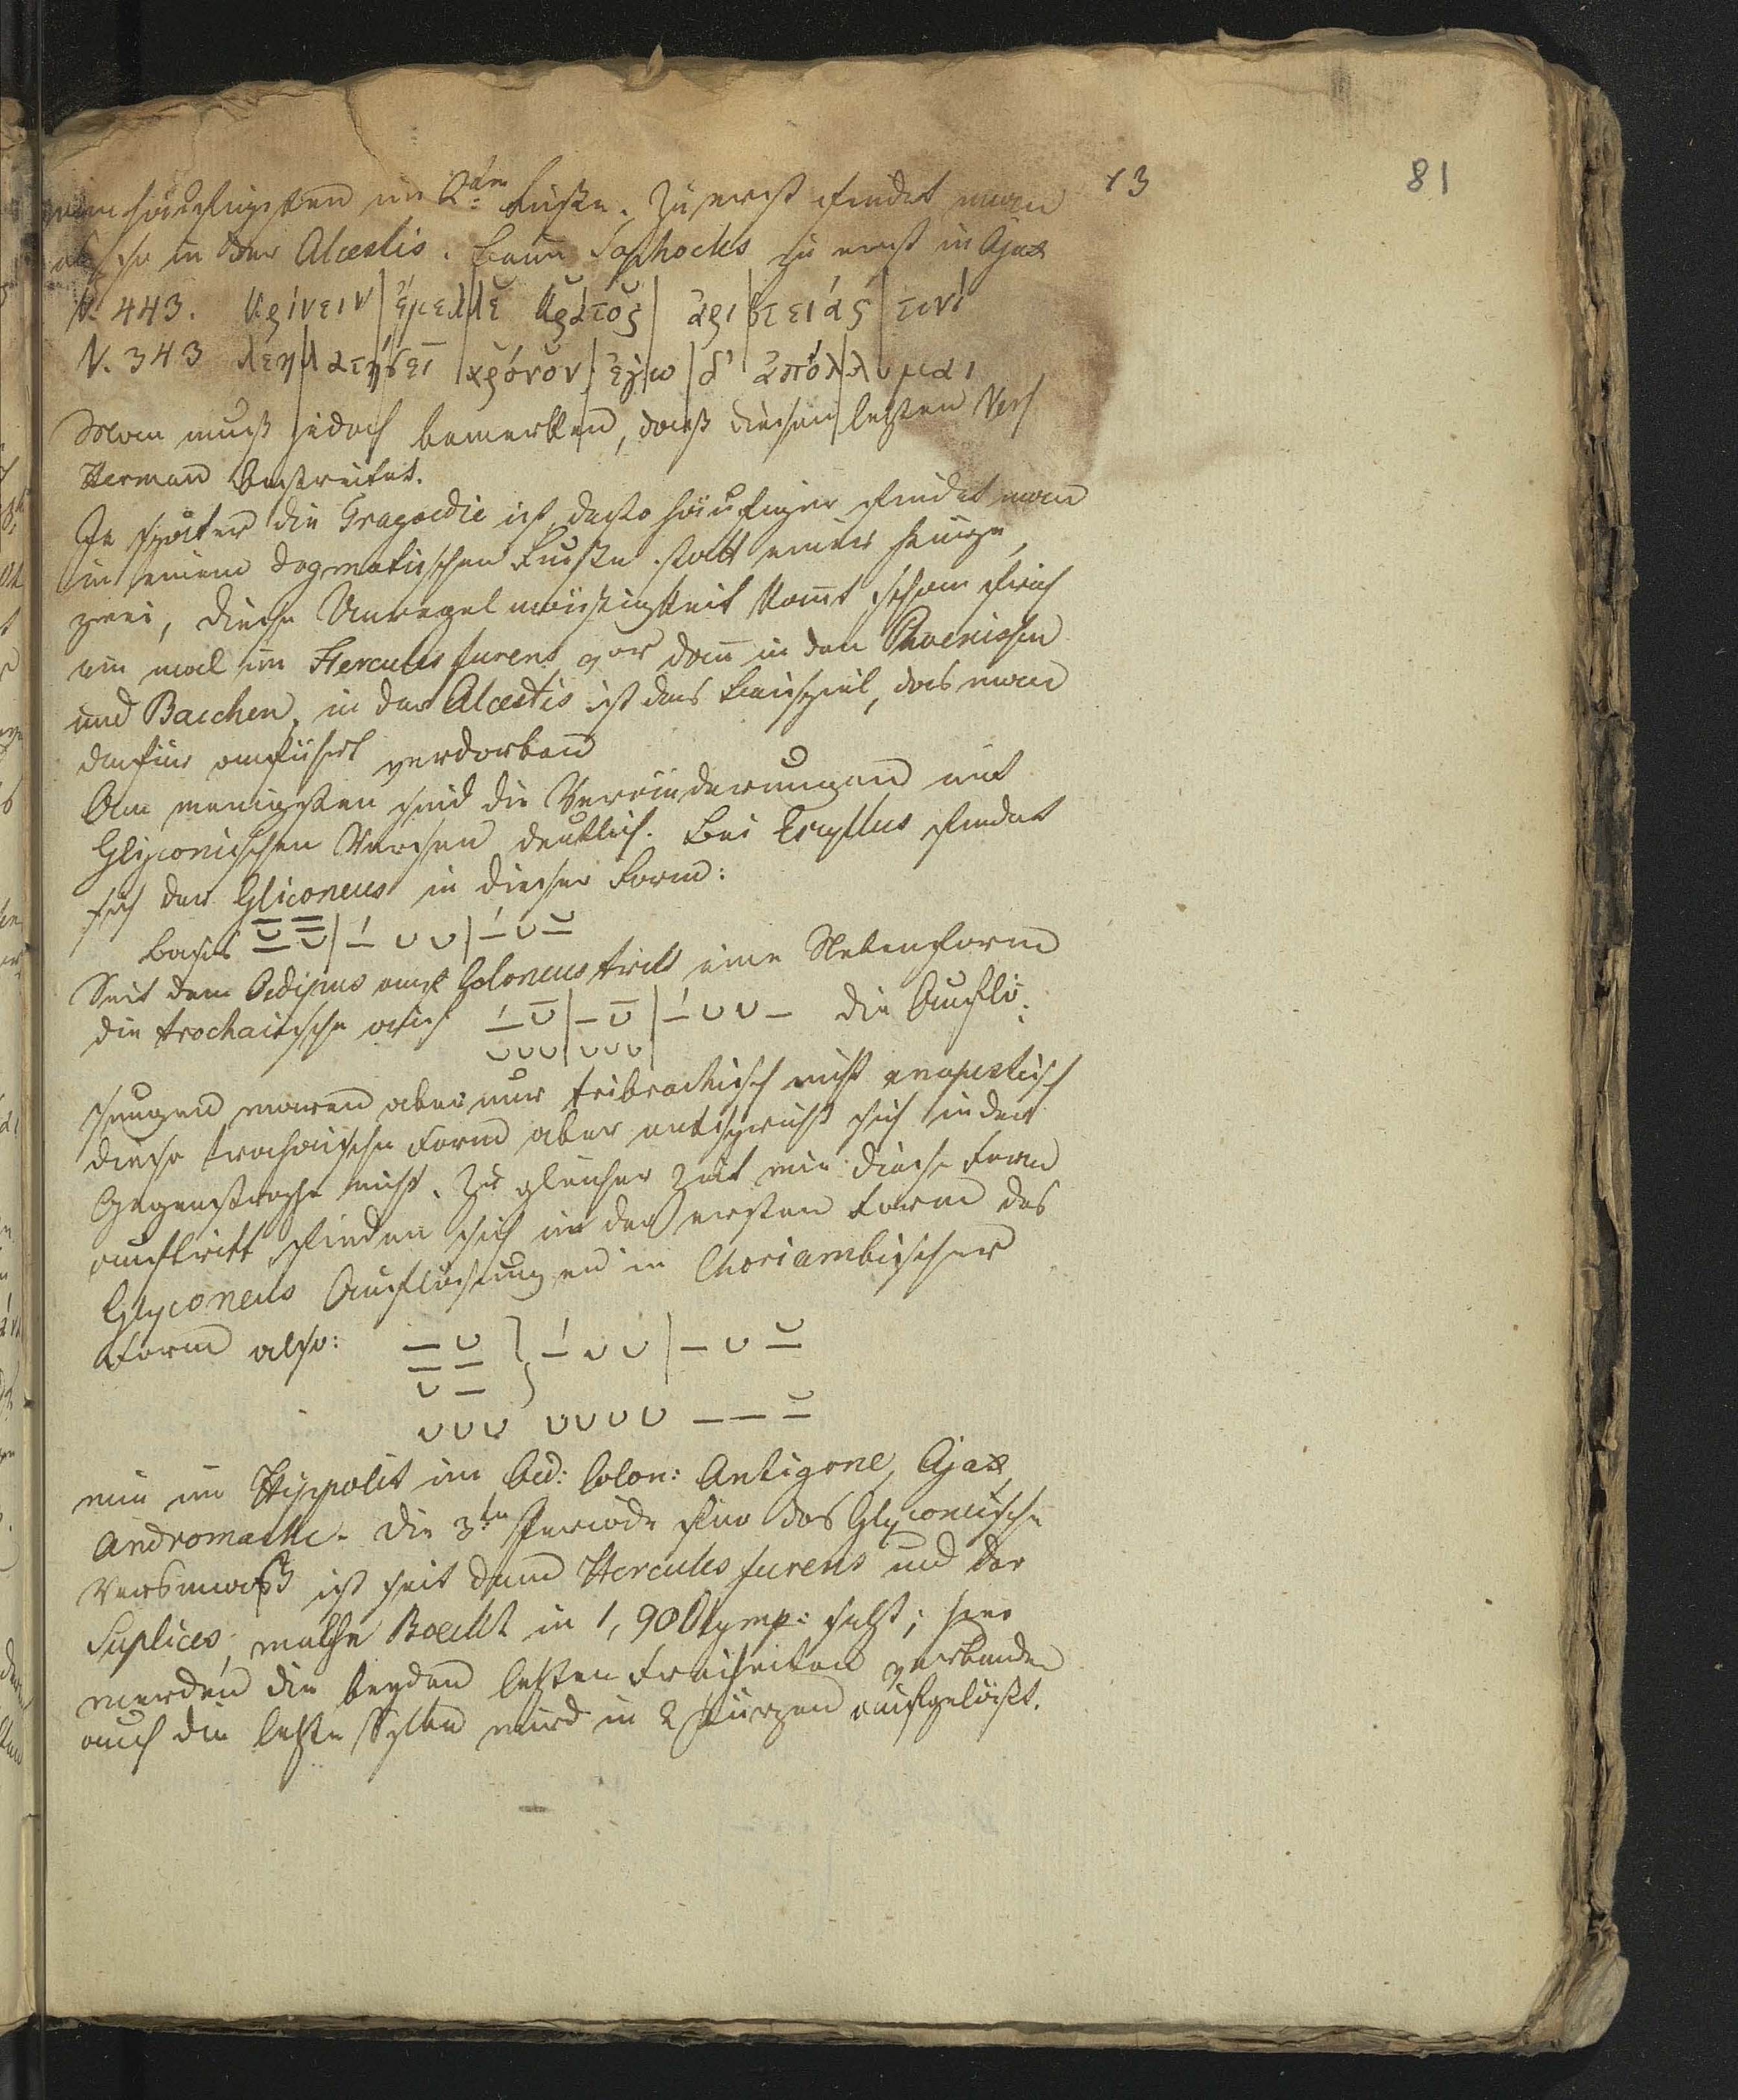 13
81
am häufigsten im 2ten Fuße. Zu erst findet man
in der Alcestis. beim Sophocles zu erst in Ajax
V. 443. κρίνειν | ἔμελλε κράτος | ἀρι|στείας | τινί
V. 343 λεη|λατήσει | χρόνον | ἐγ|ω | δ' ἀπόλ|λυμαι
Man muß jedoch bemerken, daß diesen letzten Vers
Herman bestreitet.
Je später die Tragoedie ist, desto häufiger findet man
in einem dogmatischen Fuße statt einer Länge
zwei, diese Unregelmäßigkeit kommt schon früh
ein mal im Hercules furens vor dann in den Phoenissen
und Bacchen, in der Alcestis ist das Beispiel, das man
dafür anführt verdorben
Am wenigsten sind die Veränderungen mit
Glyconischen Versen deutlich. Bei Eschyllus findet
sich der Gliconeus in dieser Form:
Basis
Seit dem Oedipus auf Coloneus tritt eine Nebenform
die trochaische auf – die Auflö:
sungen waren aber nur tribrachisch nicht anapestisch
diese trochaische Form aber entspricht sich in der
Gegenstrophe nicht. Zu gleicher Zeit wie diese Form
auftritt finden sich in der ersten Form des
Glyconeus Auflösungen in Choriambischer
Form also: – ᴗ } –́ ᴗ ᴗ | – ᴗ –
– –
ᴗ –
ᴗ ᴗ ᴗ ᴗ ᴗ ᴗ ᴗ – – –
wie im Hippolit im Oed: Colon: Antigone, Ajax,
Andromache. Die 3te Periode für das Glyconische
Versmaß ist seit dem Hercules furens und der
Suplices, welche Boeckh in 1, 90 Olymp: setzt; hier
werden die beyden letzten Freiheiten verbunden
auch die letzte Sylbe wird in 2 Kürzen aufgelößt.